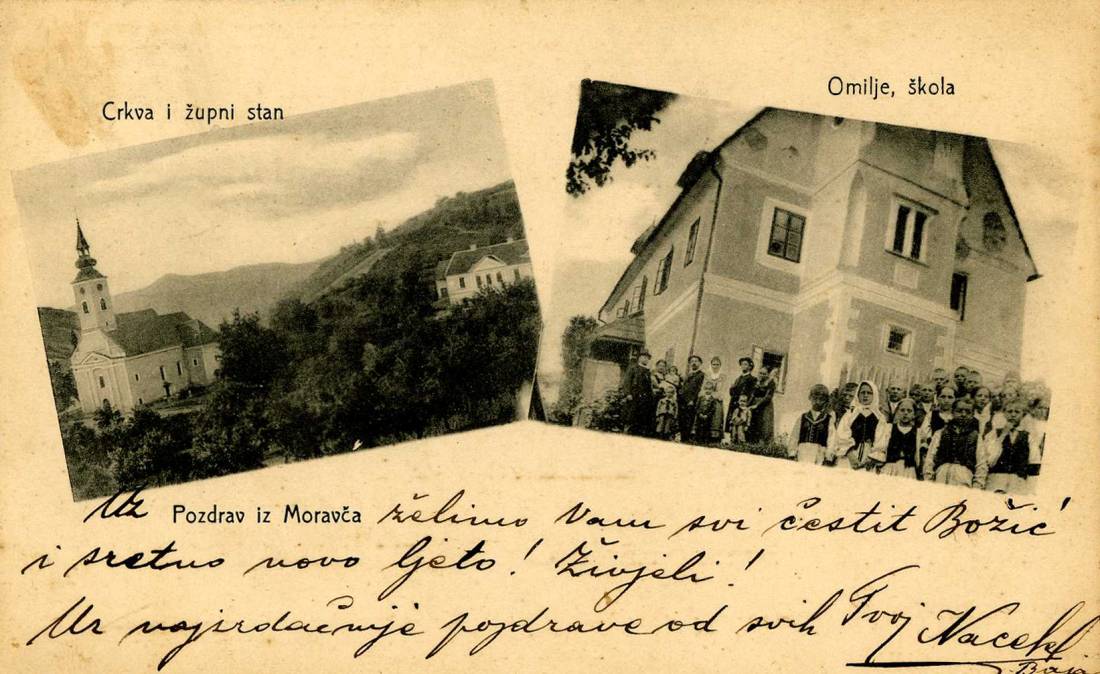 Crkva i župni stan
Omilje, škola
Uz Pozdrav iz Moravča želimo Vam svi čestit Božić
i sretno novo ljeto! Živjeli!
Uz najsrdačnije pozdrave od svih Tvoj